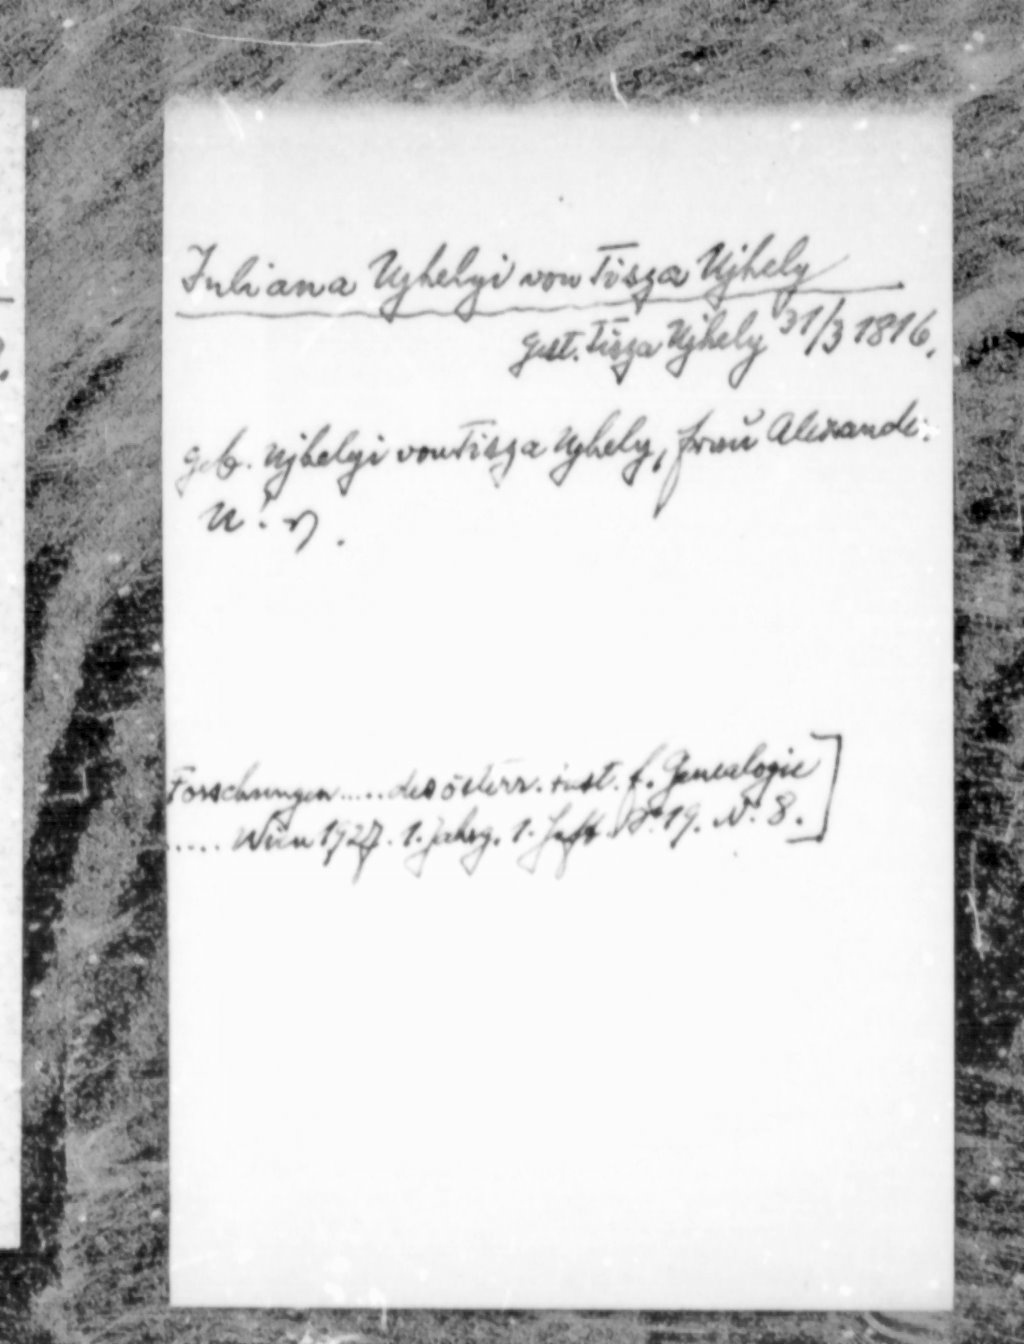 Juliana Ujhelyi von Tisza Ujhely
gest. Tisza Ujhely 31/3 1816.
geb. Ujhelyi von Tisza Ujhely, frau Alexander
Forschungen ..... des österr. inst. f. Genealogie
..... Wien 1927. 1. Jahrg. 1. Heft. S. 19. N. 8.]